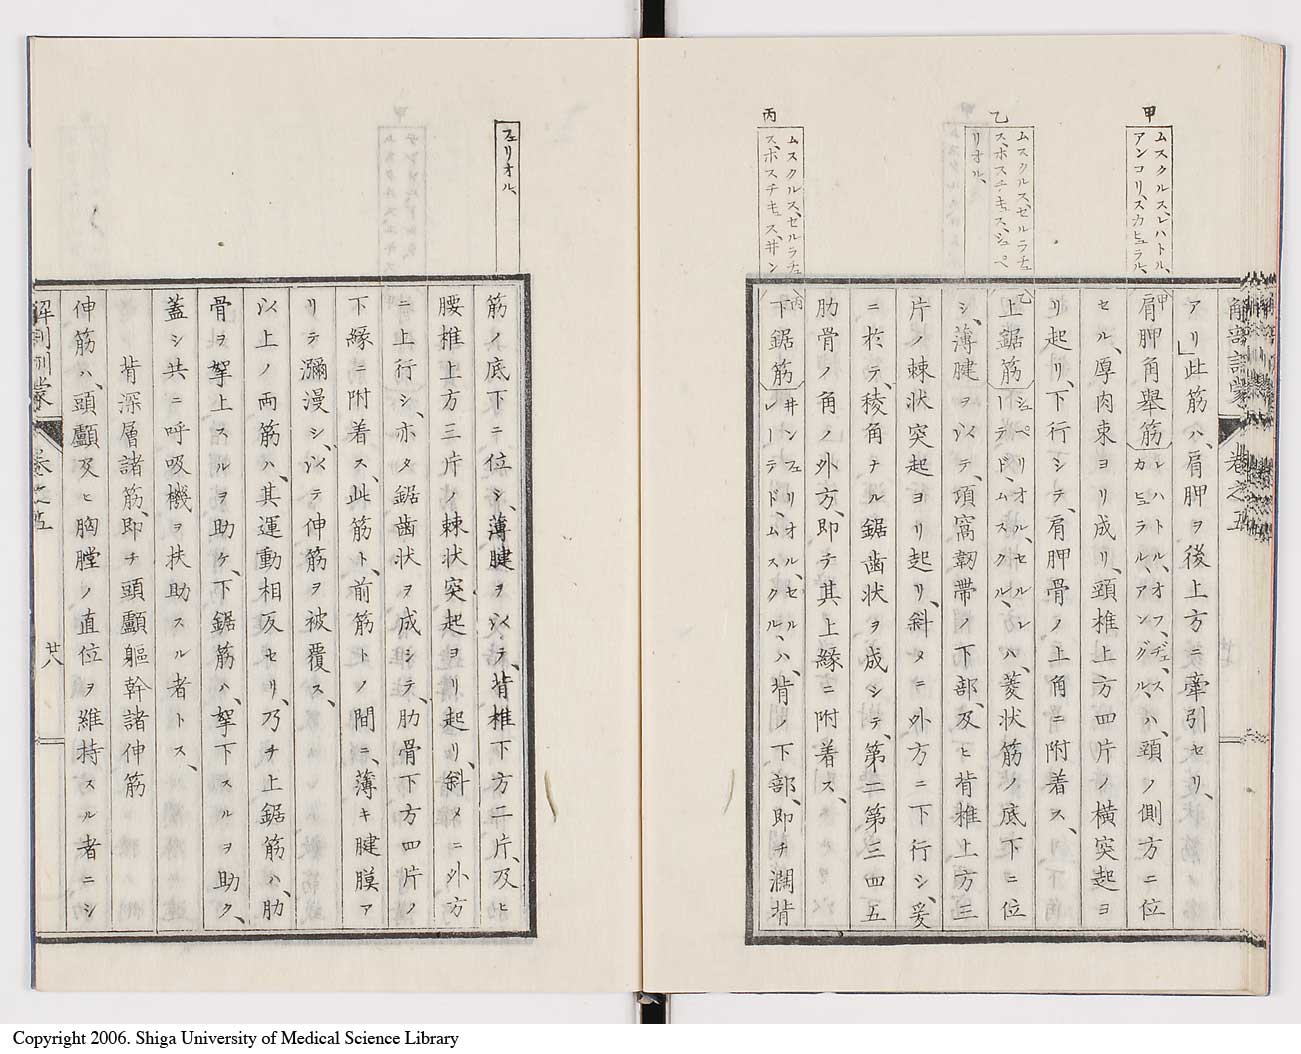 解剖訓蒙 巻之五
甲
ムスクルス、レハトル、
アンコリ、スカピュラル、
乙
ムスクルス、セルラチュ
ス、ポスチキュス、シュペ
リオル、
丙
ムスクルス、セルラチュ
ス、ポスチキュス、井ン
アリ」此筋ハ、肩胛ヲ後上方ニ牽引セリ、
甲肩胛角舉筋レハトル、オフ、ヂェ、スカピュラルル、アングル、ハ、頸ノ側方ニ位
セル、厚肉束ヨリ成リ、頸椎上方四片ノ横突起ヨ
リ起リ、下行シテ、肩胛骨ノ上角ニ附着ス、
乙上鋸筋シュペリオル、セルレーテド、ムスクル、ハ、菱状筋ノ底下ニ位
シ、薄腱ヲ以テ、項窩韌帯ノ下部、及ヒ背椎上方三
片ノ棘状突起ヨリ起リ、斜タニ外方ニ下行シ、爰
ニ於テ、稜角ナル鋸歯状ヲ成シテ、第二第三四五
肋骨ノ角ノ外方、即チ其上縁ニ附着ス、
丙下鋸筋井ンフェリオル、セルレーテド、ムスクル、ハ、背ノ下部、即チ濶背
フェリオル、
筋ノ底下ニ位シ、薄腱ヲ以テ、背椎下方二片、及ヒ
腰椎上方三片ノ棘状突起ヨリ起リ、斜メニ外方
ニ上行シ、亦タ鋸歯状ヲ成シテ、肋骨下方四片ノ
下縁ニ附着ス、此筋ト、前筋トノ間ニ、薄キ腱膜ア
リテ瀰漫シ、以テ伸筋ヲ被覆ス、
以上ノ両筋ハ、其運動相反セリ、乃チ上鋸筋ハ、肋
骨ヲ挐上スルヲ助ケ、下鋸筋ハ、挐下スルヲ助ク、
蓋シ共ニ呼吸機ヲ扶助スル者トス、
背深層諸筋、即チ頭顱軀幹諸伸筋
伸筋ハ、頭顱及ヒ胸膛ノ直位ヲ維持スル者ニシ
解剖訓蒙 巻之五 廿八
Copyright 2006. Shiga University of Medical Science Library